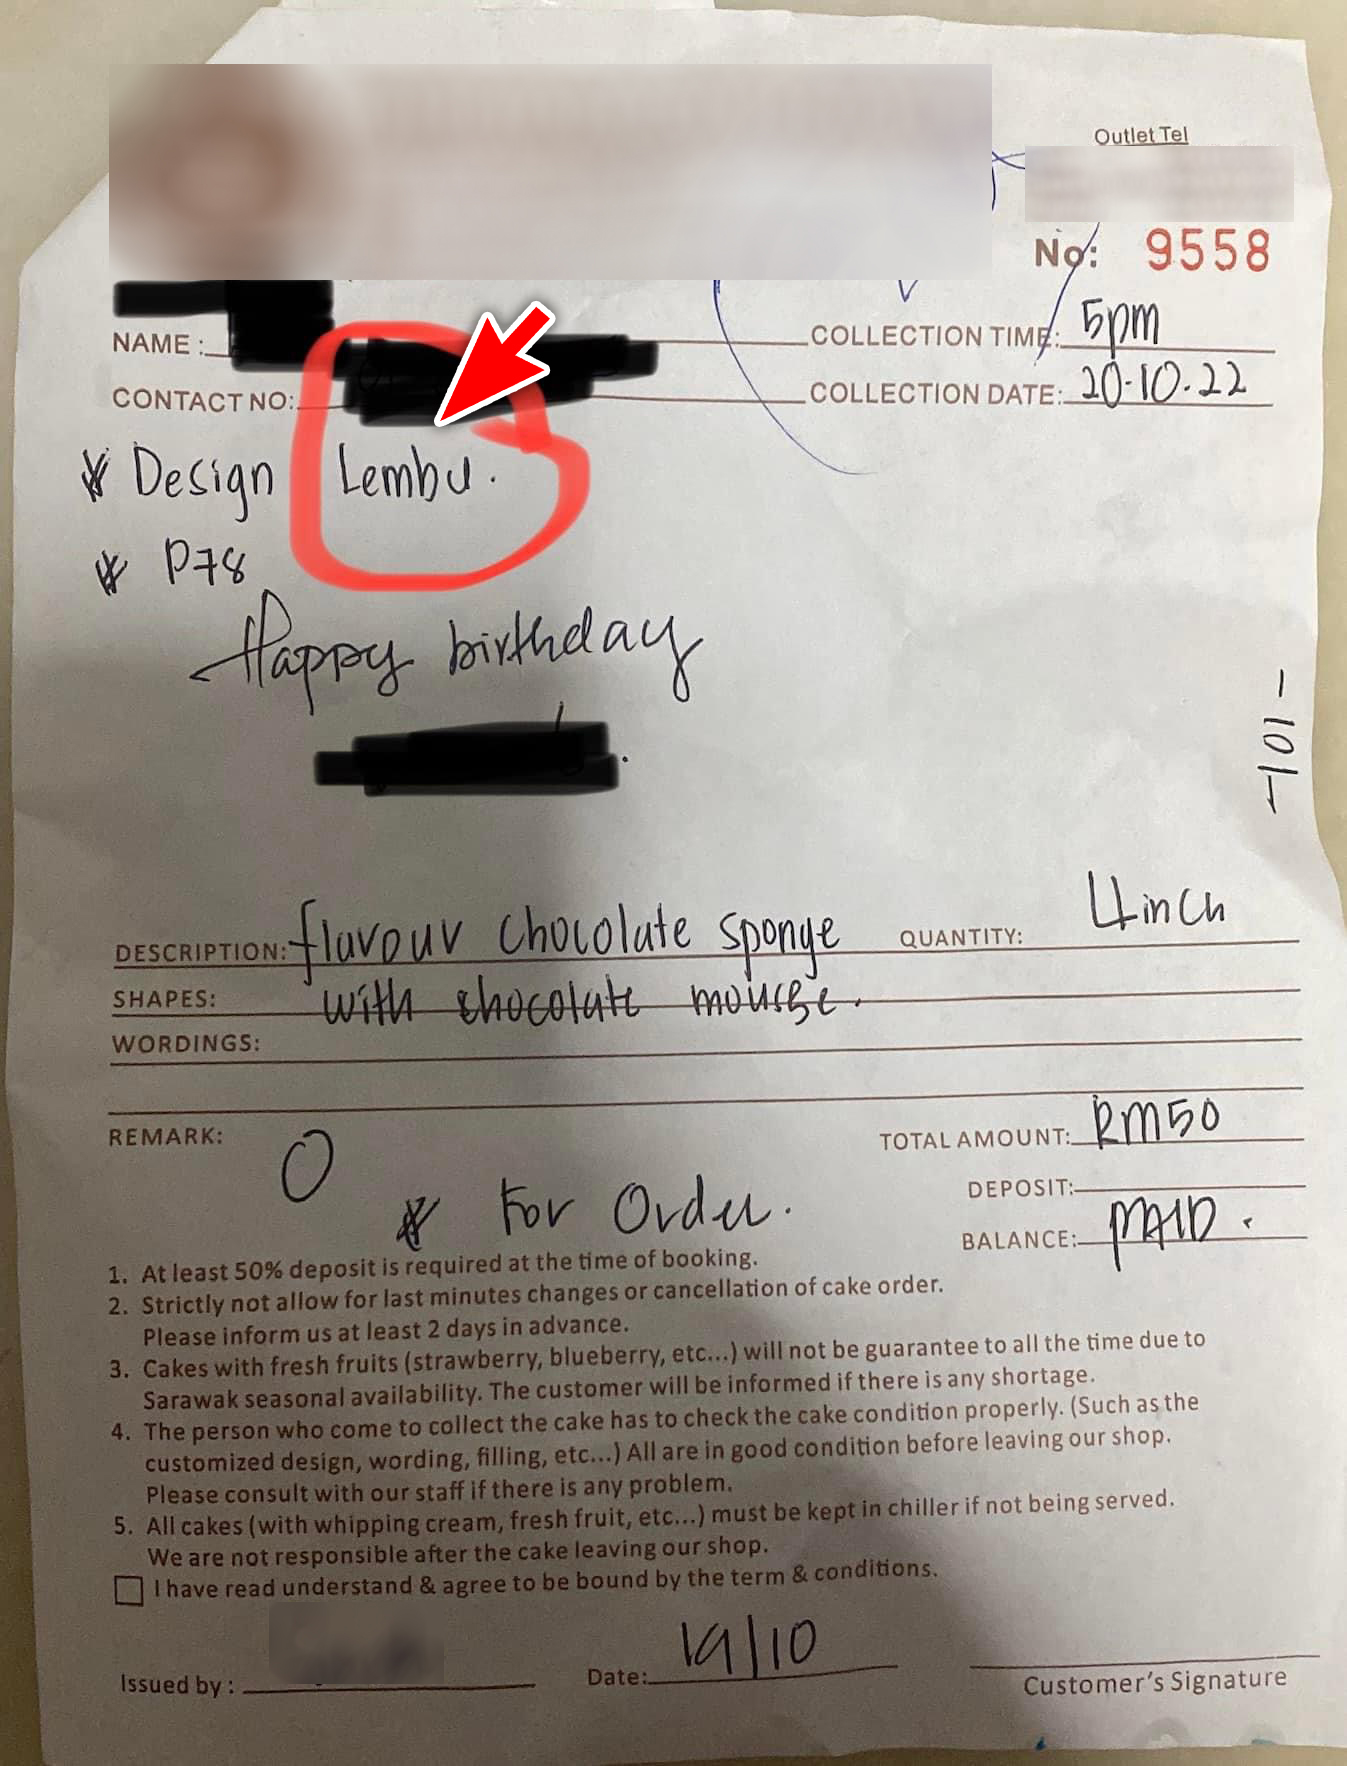 Outlet Tel
No: 9558
NAME :
COLLECTION TIME: 5pm
CONTACT NO:
COLLECTION DATE: 20.10.22
* Design Lembu.
* P78
Happy birthday
-101-
DESCRIPTION: flavour chocolate sponge
QUANTITY: 4inch
SHAPES: with chocolate mousse.
WORDINGS:
REMARK: 0
TOTAL AMOUNT: RM50
* For Order.
DEPOSIT:
BALANCE: PAID.
1. At least 50% deposit is required at the time of booking.
2. Strictly not allow for last minutes changes or cancellation of cake order.
Please inform us at least 2 days in advance.
3. Cakes with fresh fruits (strawberry, blueberry, etc...) will not be guarantee to all the time due to
Sarawak seasonal availability. The customer will be informed if there is any shortage.
4. The person who come to collect the cake has to check the cake condition properly. (Such as the
customized design, wording, filling, etc...) All are in good condition before leaving our shop.
Please consult with our staff if there is any problem.
5. All cakes (with whipping cream, fresh fruit, etc...) must be kept in chiller if not being served.
We are not responsible after the cake leaving our shop.
I have read understand & agree to be bound by the term & conditions.
Issued by :
Date: 19/10
Customer's Signature